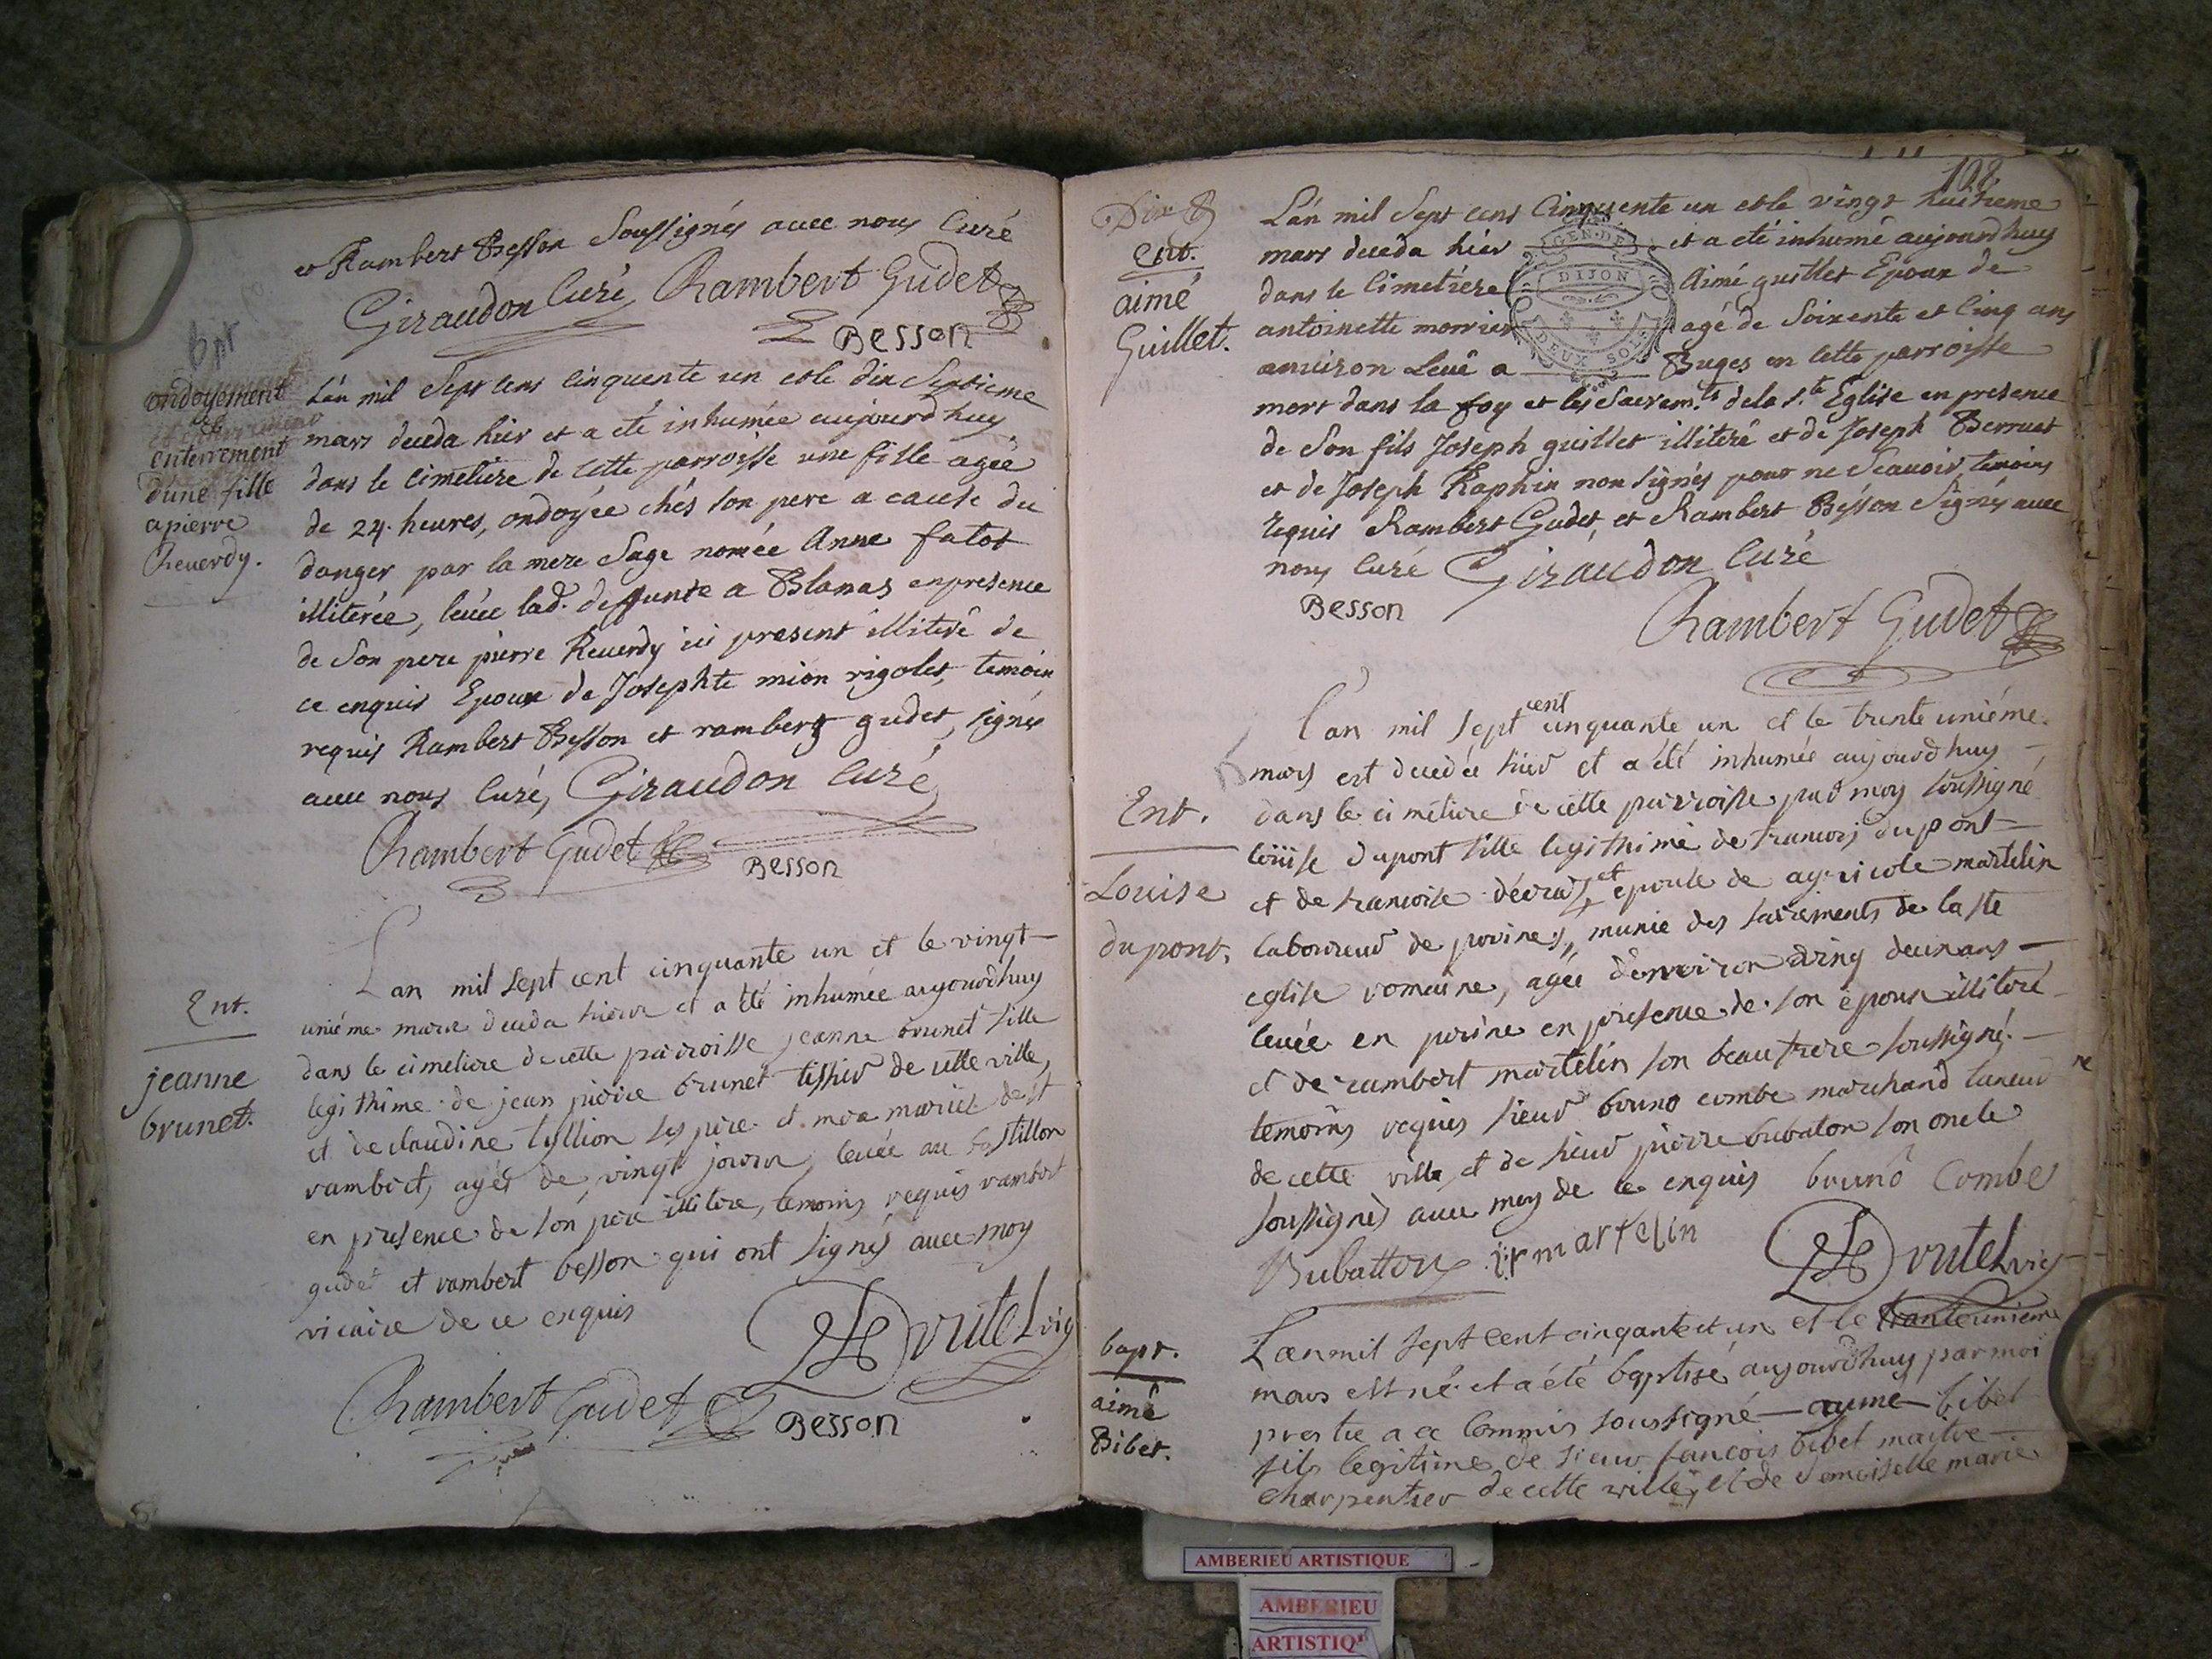 et Rambert Besson Soussignés avec nous Curé
Giraudon Curé, Rambert Gudet
Besson
bpt
ondoyement
et enterrement
enterrement
d'une fille
a pierre
Reuerdy.
L'an mil Sept cens Cinquente un et le dix Septieme
mars deceda hier et a eté inhumée aujourdhuy
dans le Cimetiere de Cette parroisse une fille agée
de 24. heures, ondoyée chés son pere a cause du
danger par la mere Sage nomée Anne fatot
illiterée, levée lad. deffunte a Blanas en presence
de Son pere pierre Reuerdy ici present illiteré de
ce enquis Epoux de Josephte mion rigolet, temoin
requis Rambert Besson et rambert gudet, signés
avec nous Curé, Giraudon Curé
Rambert Gudet
Besson
Ent.
jeanne
brunet.
L'an mil sept cent cinquante un et le vingt
uniéme mars deceda hier et a été inhumée aujourdhuy
dans le cimetiere de cette parroisse jeanne brunet fille
legithime de jean pierre brunet tissier de cette ville,
et de claudine tyllion ses pere et mere mariés de st
rambert, agée de vingt jours, levée au
en presence de son pere illitere, temoins requis rambert
gudet et rambert besson qui ont signés avec moy
vicaire de ce enquis
Drutel vic
Rambert Gudet
Besson
108
Ent.
aimé
Guillet.
L'an mil Sept cens Cinquente un et le vingt huitieme
mars deceda hier et a eté inhumé aujourdhuy
dans le Cimetiére Aimé guillet Epoux de
antoinette monnier agé de Soixente et Cinq ans
anviron Levé a Buges en Cette parroisse
mort dans la foy et les Sacrem.ts de la S.te Eglise en presence
de Son fils Joseph guillet illiteré et de Joseph Berruet
et de Joseph Raphin non signés pour ne Scavoir temoins
requis Rambert Gudet, et Rambert Besson Signés avec
nous Curé Giraudon Curé
Besson
Rambert Gudet
GEN. DE
DIJON
DEUX SOLS
Ent.
Louise
dupont.
L'an mil sept cent cinquante un et le trente uniéme
mars est decedée hier et a été inhumée aujourdhuy
dans le cimetiere de cette parroisse par moy soussigné
loüise dupont fille legithime de francois dupont
et de francoise et epouse de agricole martelin
laboureur de povines, munie des sacrements de la ste
eglise romaine, agée d'environ vingt deux ans
levée en povine en presence de son epoux illiteré
et de rambert martelin son beau frere soussigné.
temoins requis sieur bruno combe marchand taneur
de cette ville et de sieur pierre bubaton son oncle
soussignés avec moy de ce enquis bruno Combe
Bubatton martelin
Drutel vic
bapt.
aimé
Bibet.
L'an mil sept cent cinquante et un et le trante unieme
mars est né et a été baptisé aujourdhuy par moi
prestre a ce Commis soussigné aimé bibet
fils legitime de Sieur francois bibet maitre
charpentier de cette ville, et de demoiselle marie
AMBERIEU ARTISTIQUE
AMBERIEU
ARTISTIQ